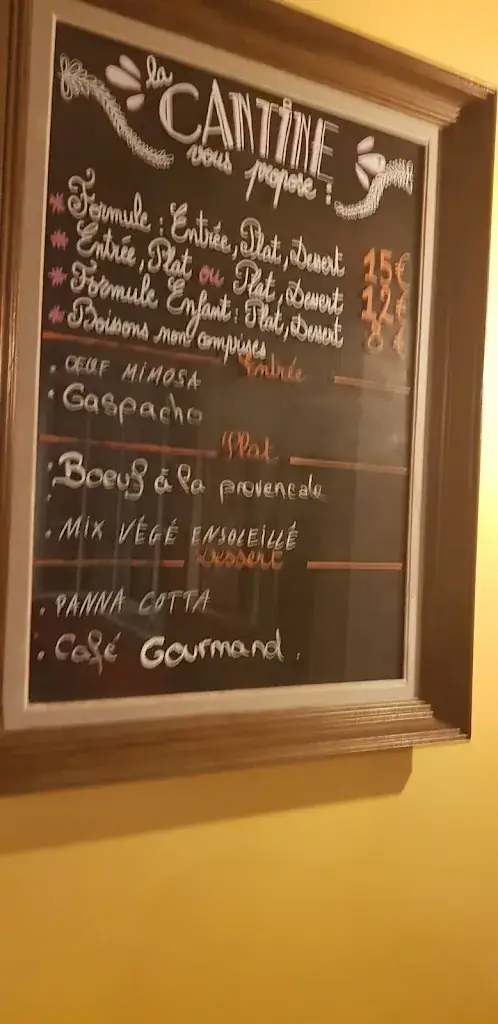 la
CANTINE
vous propose :
* Formule : Entrée, Plat, Dessert 15€
* Entrée, Plat ou Plat, Dessert 12€
* Formule Enfant : Plat, Dessert 8€
* Boissons non comprises
Entrée
. OEUF MIMOSA
. Gaspacho
Plat
. Boeuf à la provençale
. MIX VÉGÉ ENSOLEILLÉ
Dessert
. PANNA COTTA
. Café Gourmand.